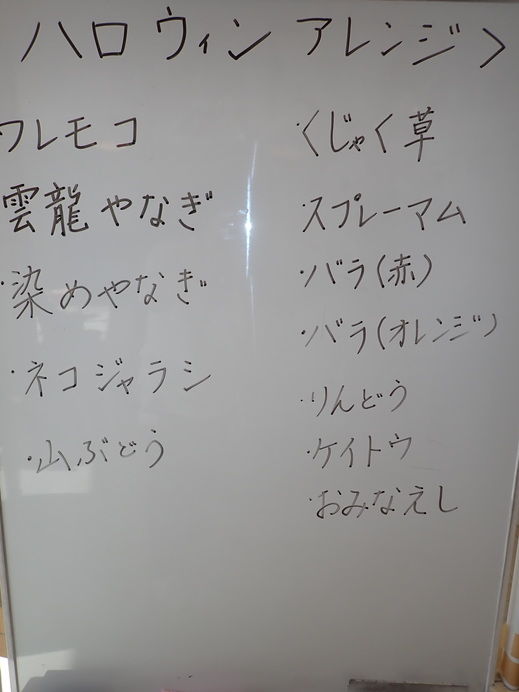 ハロウィンアレンジ>
ワレモコ
雲龍やなぎ
・染めやなぎ
・ネコジャラシ
・山ぶどう
・くじゃく草
・スプレーマム
・バラ(赤)
・バラ(オレンジ)
・りんどう
・ケイトウ
・おみなえし